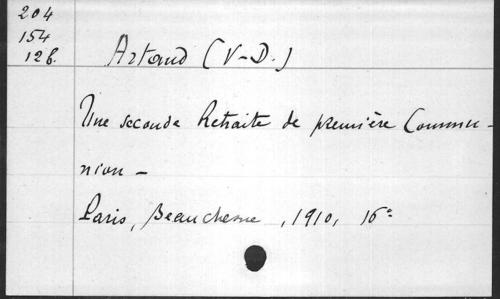 204
154
12 f.
Artaud (V-D.)
Une seconde Retraite de première Commu-
nion -
Paris, Beauchesne, 1910, 16º